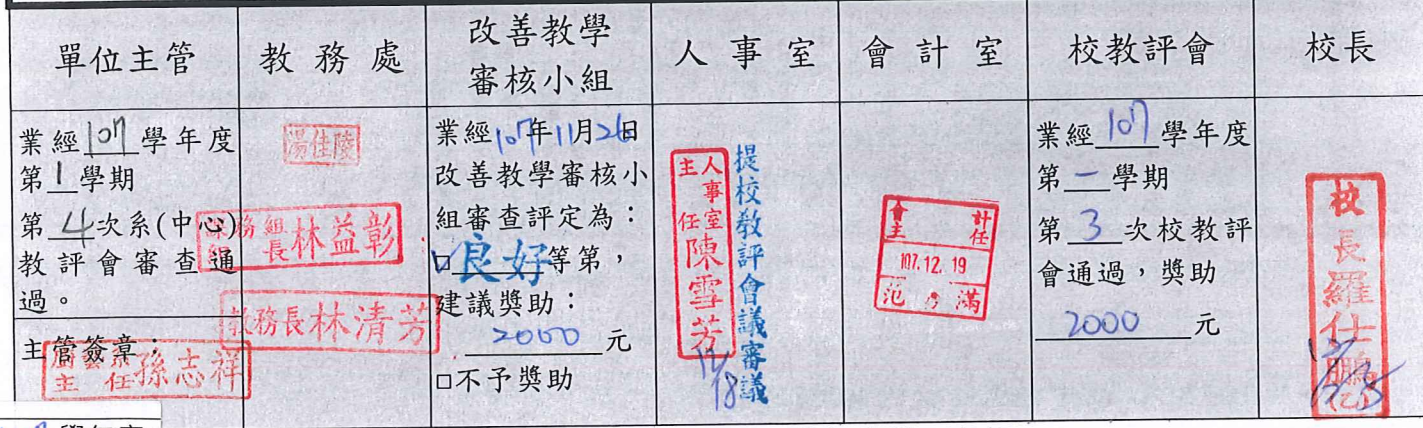 單位主管
教務處
改善教學
審核小組
人事室
會計室
校教評會
校長
業經107學年度
第1學期
第4次系(中心)
教評會審查通
過。
主管簽章：
主任孫志祥
湯佳陵
課務組
組長林益彰
教務長林清芳
業經107年11月26日
改善教學審核小
組審查評定為：
□良好等第，
建議獎助：
2000元
□不予獎助
人事室
主任陳雪芳
提校教評會議審議
12/18
會計
主任
107.12.19
滿
業經107學年度
第一學期
第3次校教評
會通過，獎助
2000元
校長羅仕鵬
(乙)
學年度